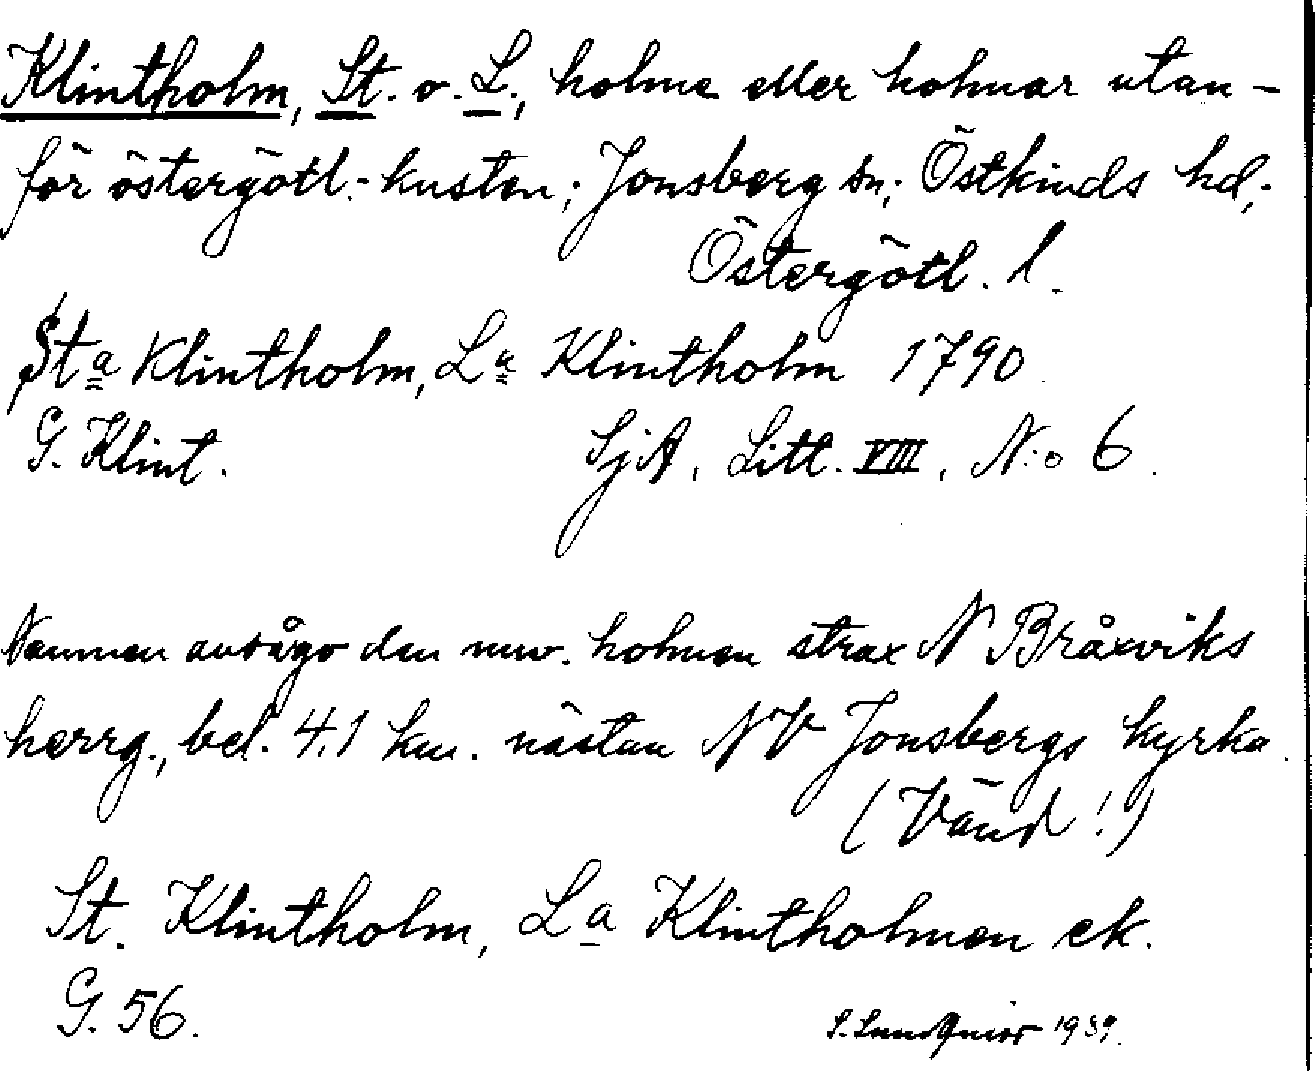 Klintholm, St. o. L., holme eller holmar utan-
för östergötl.-kusten; Jonsberg sn; Östkinds hd;
Östergötl. l.
Sta Klintholm, La Klintholm 1790
G. Klint. SjA, Litt. VIII, N:o 6.
Namnen avsågo den nuv. holmen strax N Bråxviks
herrg., bel. 4.1 km. nästan NV Jonsbergs kyrka.
(Vänd!)
St. Klintholm, La Klintholmen ek.
G. 56. S. Lundquist 1939.